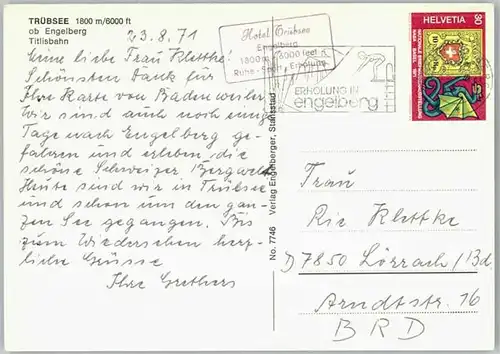 TRÜBSEE 1800 m/6000 ft
ob Engelberg
Titlisbahn
23.8.71
Meine liebe Frau Klettke!
Schönsten Dank für
Ihre Karte von Badenweiler
Wir sind auch noch einige
Tage nach Engelberg ge-
fahren und erleben die
schöne Schweizer Bergwelt
Heute sind wir in Trübsee
und schon um den gan-
zen See gegangen. Bis
zum Wiedersehen herz-
liche Grüsse
Ihre Grethers
No. 7746 Verlag Engelberger, Stansstad
Hotel Trübsee
Engelberg
1800 m 6000 feet
Ruhe - Sport - Erholung
ERHOLUNG IN
engelberg
HELVETIA 30
Frau
Ria Klettke
D 7850 Lörrach/Bd.
Arndtstr. 16
BRD